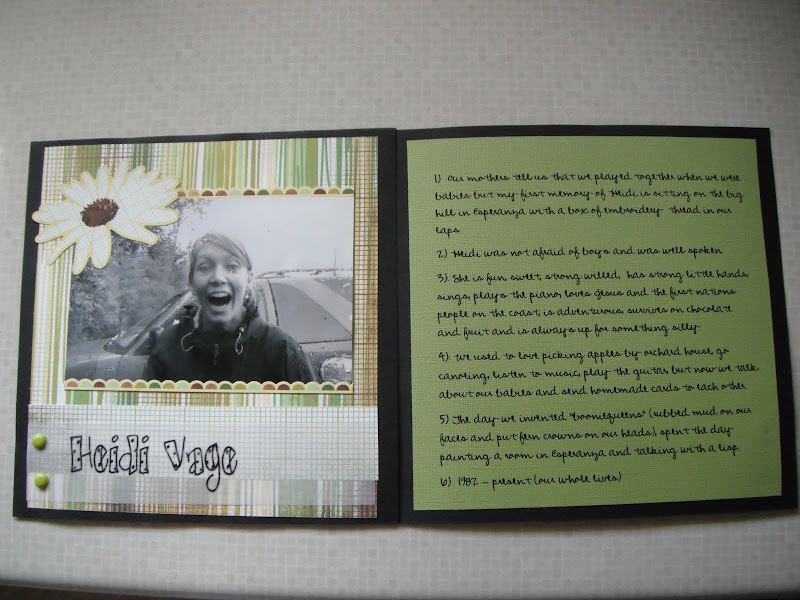 Heidi Vage
1) Our mothers tell us that we played together when we were
babies but my first memory of Heidi is sitting on the big
hill in Esperanza with a box of embroidery thread in our
laps
2) Heidi was not afraid of boys and was well spoken
3) She is fun, sweet, strong willed, has strong little hands,
sings, plays the piano, loves Jesus and the first nations
people on the coast, is adventurous, survives on chocolate
and fruit and is always up for something silly.
4) We used to love picking apples by orchard house, go
canoeing, listen to music, play the guitar, but now we talk
about our babies and send homemade cards to each other
5) The day we invented "booniequeens" (rubbed mud on our
faces and put fern crowns on our heads), spent the day
painting a room in Esperanza and talking with a lisp
6) 1982 - present (our whole lives)